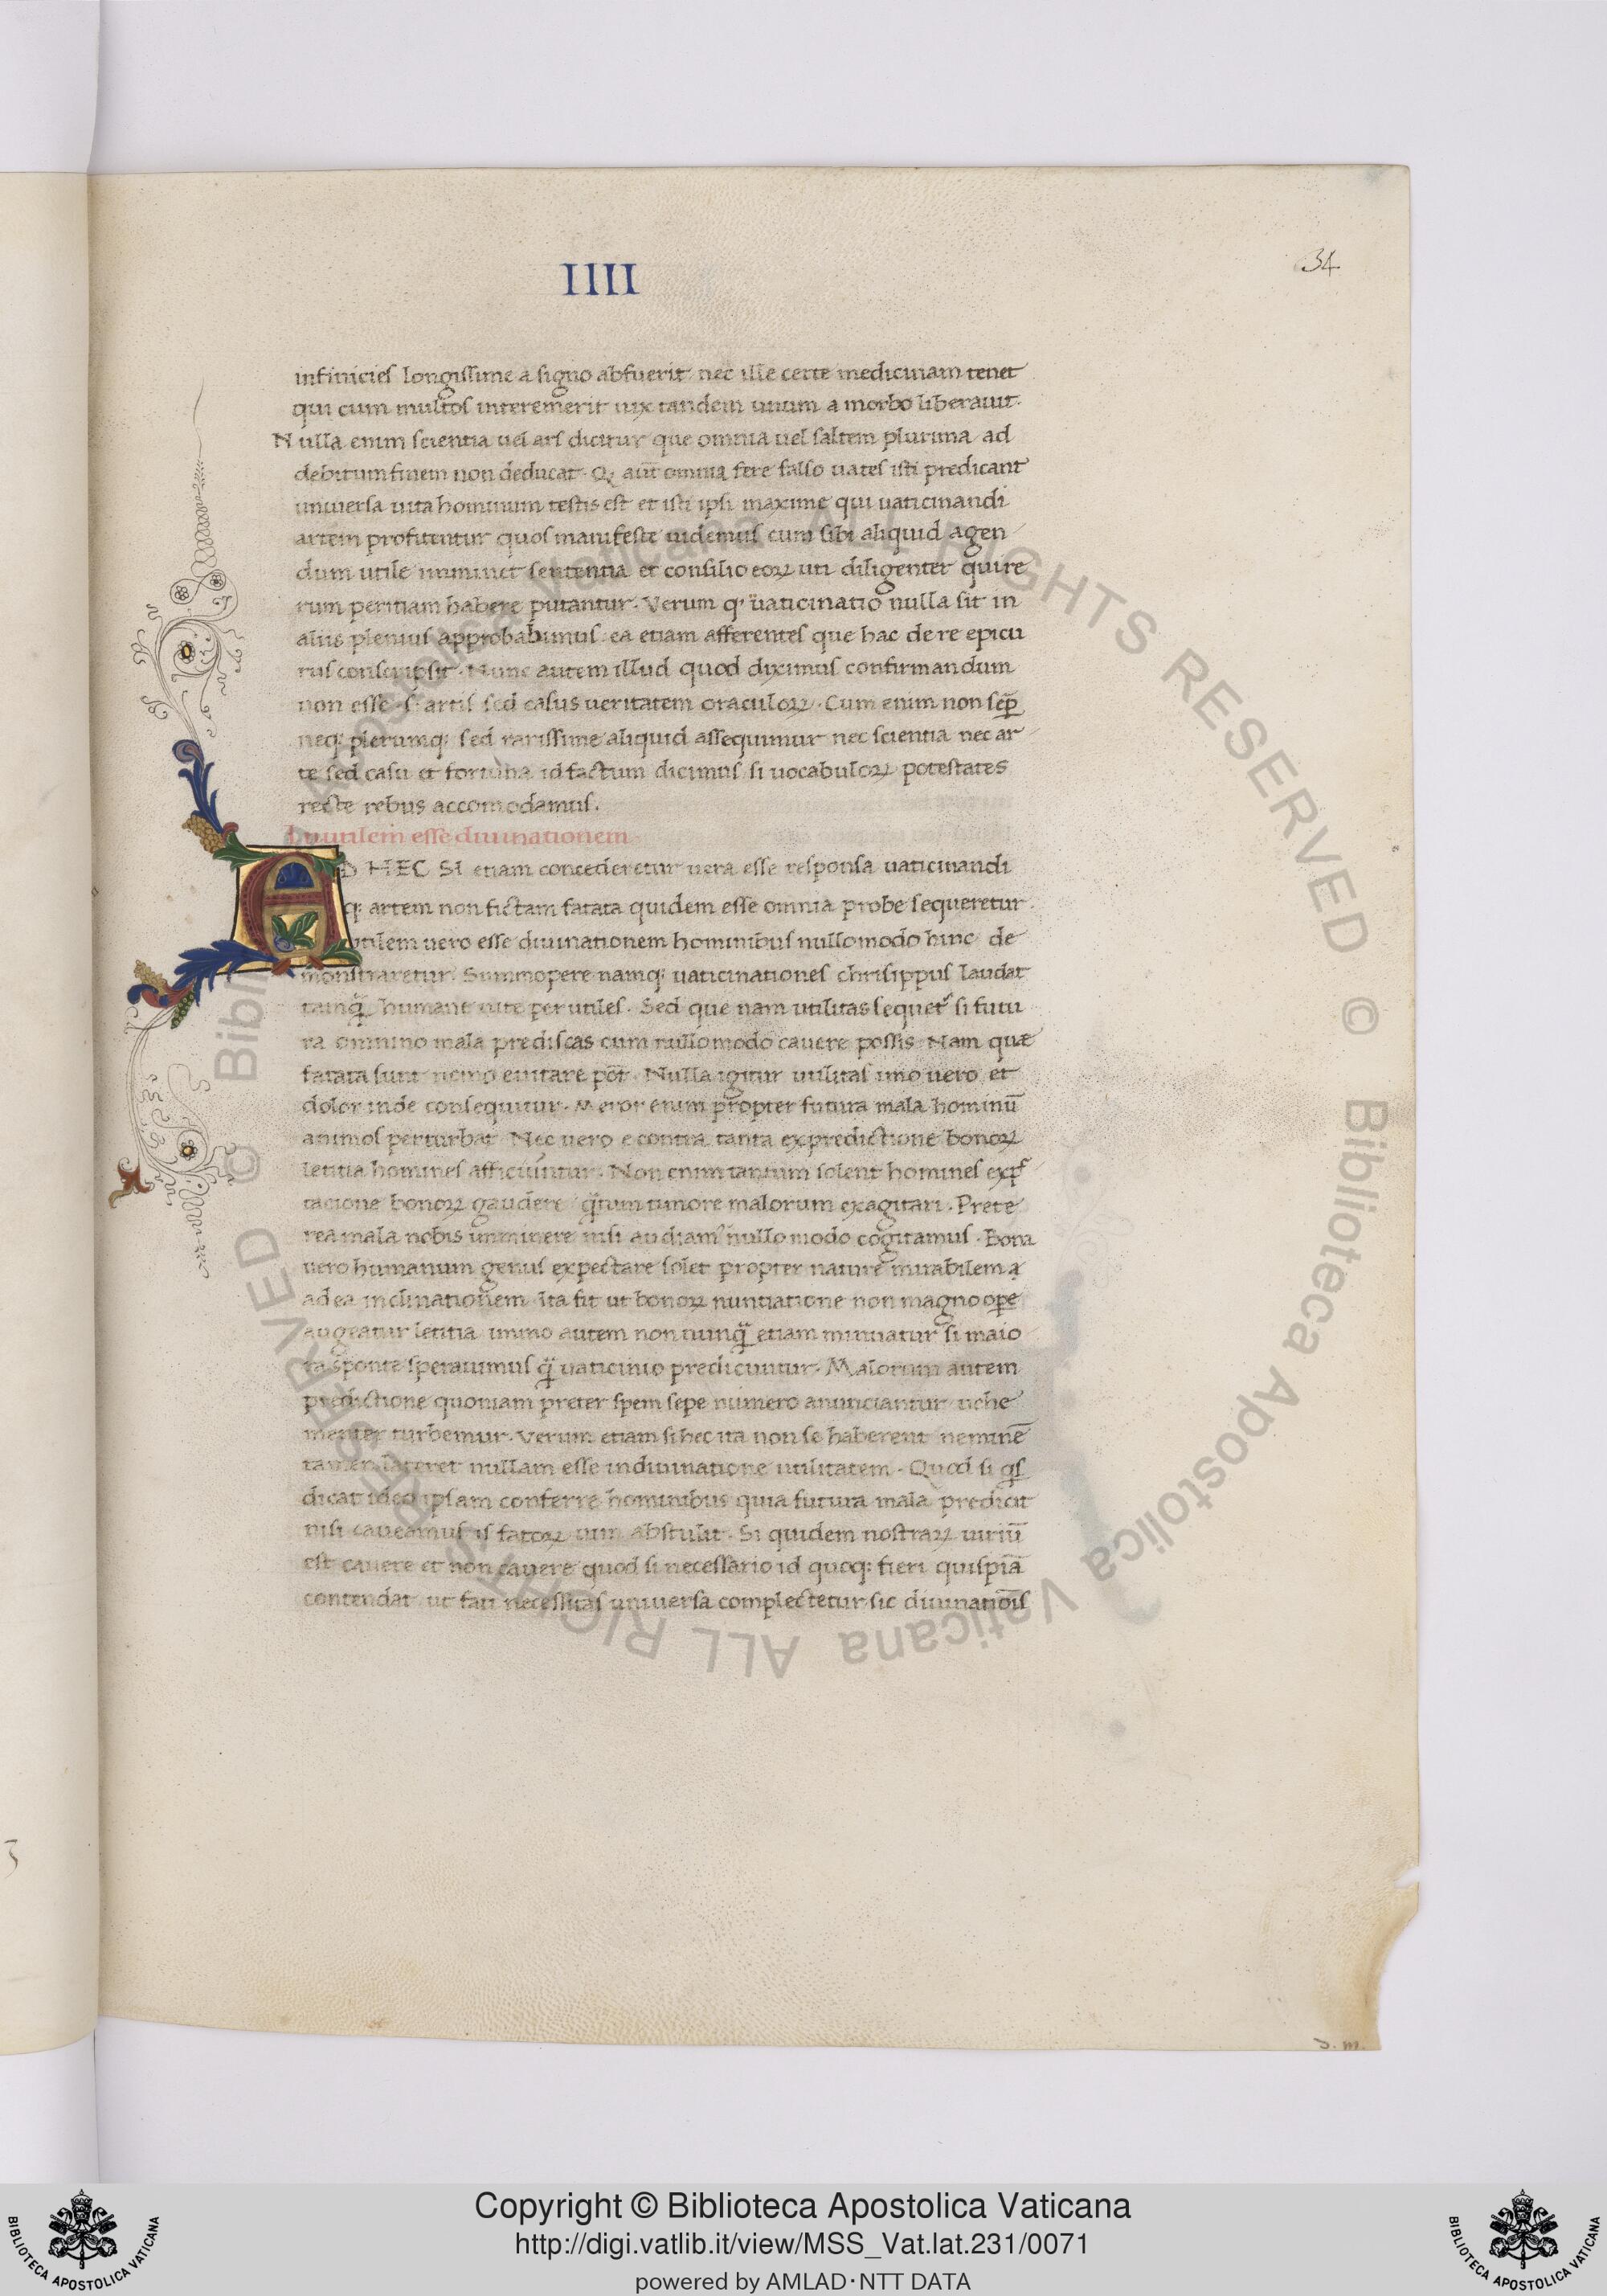 IIII
34
infinicies longissime a signo abfuerit nec ille certe medicinam tenet
qui cum multos interemerit uix tandem unum a morbo liberauit.
Nulla enim scientia uel ars dicitur que omnia uel saltem plurima ad
debitum finem non deducat. Qꝫ aut̄ omnia fere falso uates isti predicant
uniuersa uita hominum testis est et isti ipsi maxime qui uaticinandi
artem profitentur quos manifeste uidemus cum sibi aliquid agen
dum utile imminet sententia et consilio eoꝝ uti diligenter qui re
rum peritiam habere putantur. Verum q uaticinatio nulla sit in
aliis plenius approbabimus ea etiam afferentes que hac de re epicu
rus conscripsit. Nunc autem illud quod diximus confirmandum
non esse artis sed casus ueritatem oraculoꝝ. Cum enim non sēp
neqꝫ plerumqꝫ sed rarissime aliquid assequimur nec scientia nec ar
te sed casu et fortuna id factum dicimus si uocabuloꝝ potestates
recte rebus accomodamus.
Inutilem esse diuinationem
AD HEC SI etiam concederetur uera esse responsa uaticinandi
qꝫ artem non fictam fatata quidem esse omnia probe sequeretur.
utilem uero esse diuinationem hominibus nullo modo hinc de
monstraretur. Summopere namqꝫ uaticinationes chrisippus laudat
tanq̄ humane uite per utiles. Sed que nam utilitas sequet̉ si futu
ra omnino mala prediscas cum nullo modo cauere possis. Nam quæ
fatata sunt nemo euitare pōt. Nulla igitur utilitas imo uero et
dolor inde consequitur. Meror enim propter futura mala hominū
animos perturbat. Nec uero e contra tanta ex predictione bonoꝝ
letitia homines afficiuntur. Non enim tantum solent homines exp
tacione bonoꝝ gaudere q̄tum timore malorum exagitari. Prete
rea mala nobis imminere nisi audiam nullo modo cogitamus. Bona
uero humanum genus expectare solet propter nature mirabilem
ad ea inclinationem. Ita fit ut bonoꝝ nuntiatione non magno oꝑe
augeatur letitia immo autem non nunq̄ etiam minuatur si maio
ra sponte sperauimus q̄ uaticinio predicuntur. Malorum autem
predictione quoniam preter spem sepe numero anunciantur uehe
menter turbemur. Verum etiam si hec ita non se haberent neminē
tamen lateret nullam esse in diuinatione utilitatem. Quod si qs
dicat ideo ipsam conferre hominibus quia futura mala predicit
nisi caueamus is fatoꝝ uim abstulit. Si quidem nostraꝝ uiriū
est cauere et non cauere quod si necessario id quoqꝫ fieri quispiā
contendat ut fati necessitas uniuersa complectetur sic diuinatiōis
3
S. m.
© Biblioteca Apostolica Vaticana ALL RIGHTS RESERVED © Biblioteca Apostolica Vaticana ALL RIGHTS RESERVED
BIBLIOTECA APOSTOLICA VATICANA
Copyright © Biblioteca Apostolica Vaticana
http://digi.vatlib.it/view/MSS_Vat.lat.231/0071
powered by AMLAD·NTT DATA
BIBLIOTECA APOSTOLICA VATICANA